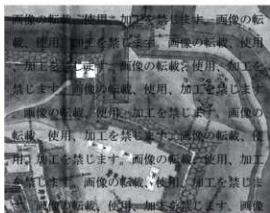 画像の転載、使用、加工を禁じます。画像の転
載、使用、加工を禁じます。画像の転載、使用
、加工を禁じます。画像の転載、使用、加工を
禁じます。画像の転載、使用、加工を禁じます
。画像の転載、使用、加工を禁じます。画像の
転載、使用、加工を禁じます。画像の転載、使
用、加工を禁じます。画像の転載、使用、加工
を禁じます。画像の転載、使用、加工を禁じま
す。画像の転載、使用、加工を禁じます。画像